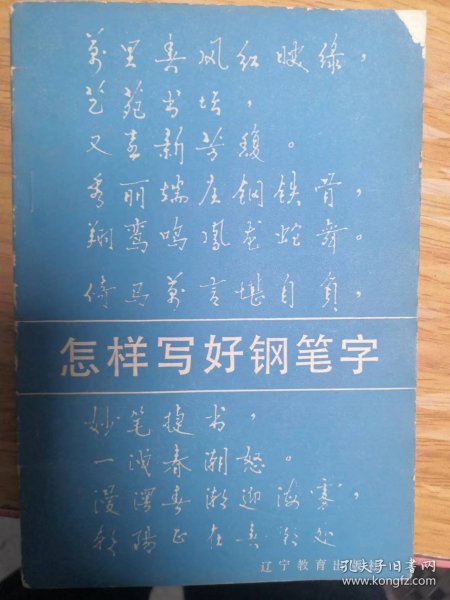 萬里春风红绿，
艺苑书坛，
又喜新芳馥。
秀丽端庄钢铁骨，
翔鸾鸣凤龙蛇舞。
倚马萬言堪自负，
怎样写好钢笔字
妙笔捷书，
一春潮怒。
漫春潮迎海，
朝阳正在春处
辽宁教育出版社
孔夫子旧书网
kongfz.com